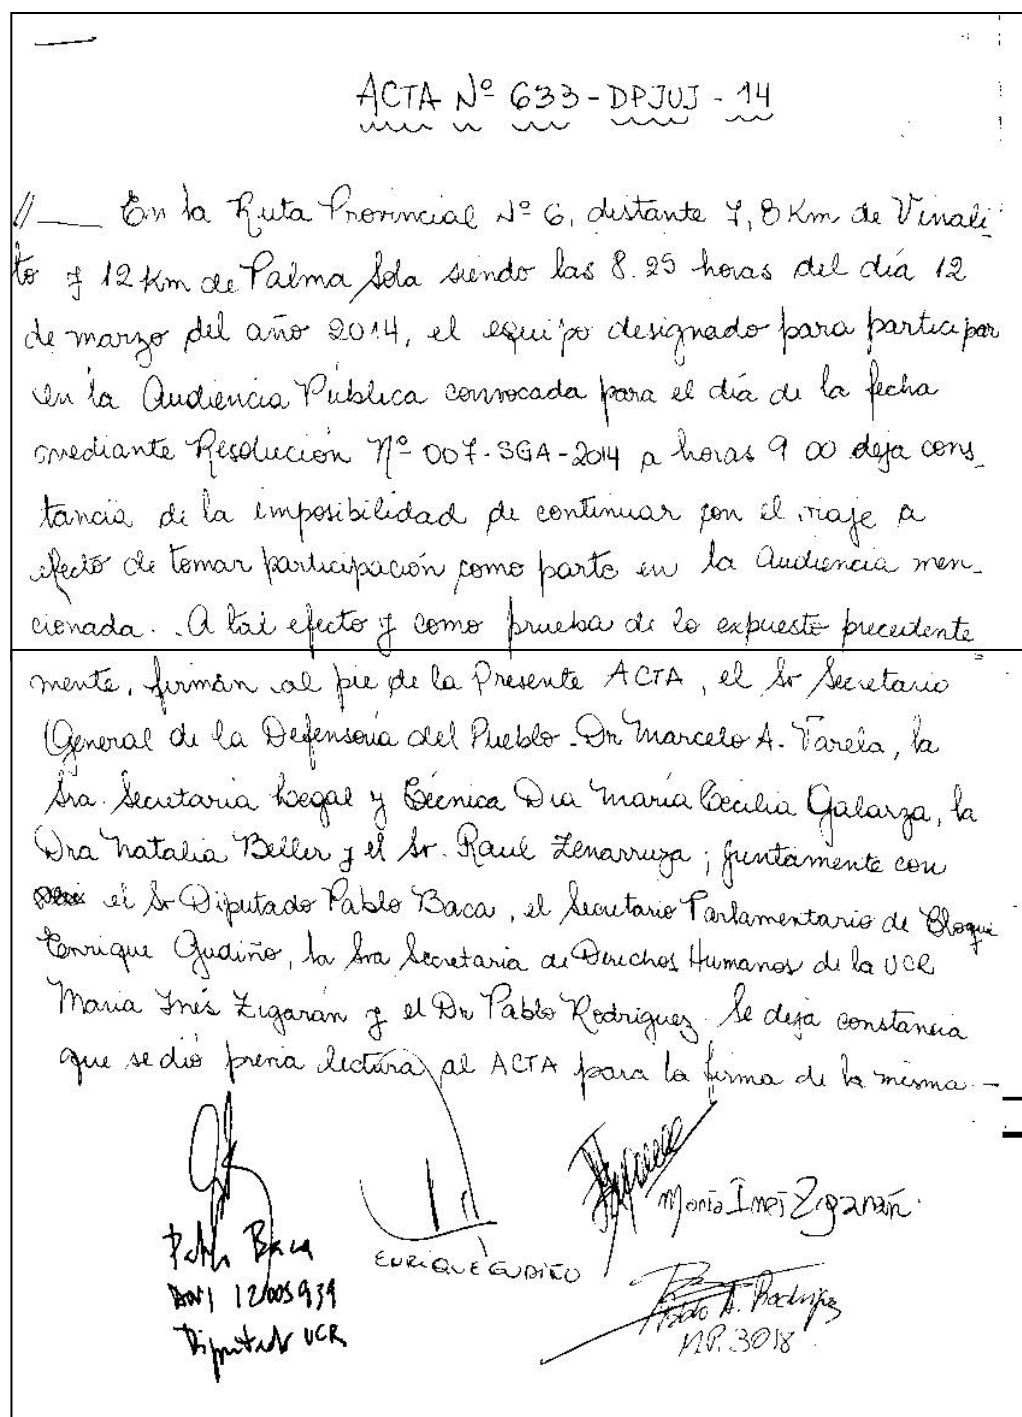 ACTA Nº 633-DPJUJ-14
//___ En la Ruta Provincial Nº 6, distante 7,8 Km de Vinali-
to y 12 Km de Palma Sola siendo las 8.25 horas del día 12
de marzo del año 2014, el equipo designado para participar
en la Audiencia Pública convocada para el día de la fecha
mediante Resolución Nº 007-SGA-2014 a horas 9 00 deja cons-
tancia de la imposibilidad de continuar con el viaje a
efecto de tomar participación como parte en la Audiencia men-
cionada. A tal efecto y como prueba de lo expuesto precedente
mente, firman al pie de la Presente ACTA, el Sr Secretario
General de la Defensoría del Pueblo - Dr Marcelo A. Varela, la
Sra. Secretaria Legal y Técnica Dra María Cecilia Galarza, la
Dra Natalia Beller y el Sr. Raul Zenarruza; juntamente con
el Sr Diputado Pablo Baca, el Secretario Parlamentario de Bloque
Enrique Gudiño, la Sra Secretaria de Derechos Humanos de la UCR
Maria Inés Zigarán y el Dr Pablo Rodriguez. Se deja constancia
que se dió previa lectura al ACTA para la firma de la misma.-
Pablo Baca
DNI 12005939
Diputado UCR
ENRIQUE GUDIÑO
María Inés Zigarán.
Pablo A. Rodríguez
M.P. 3018